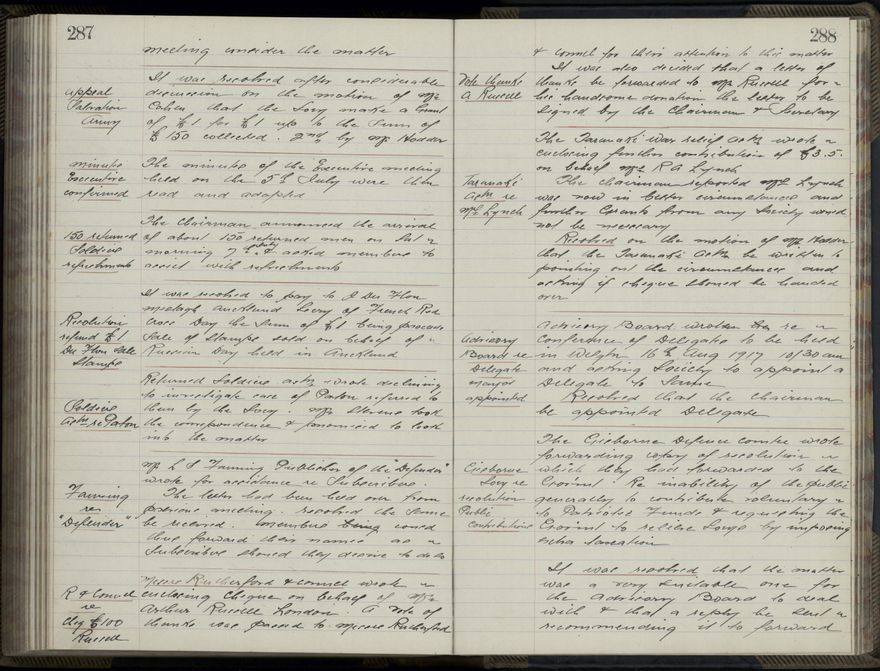 287
meeting consider the matter
Appeal
Salvation
Army
It was resolved after considerable
discussion on the motion of Mr
Cohen that the Socy make a Grant
of £1 for £1 up to the Sum of
£150 collected. 2nd by Mr Hodder
minutes
Executive
confirmed
The minutes of the Executive meeting
held on the 5th July were then
read and adopted
150 returned
Soldiers
refreshments
The Chairman announced the arrival
of about 150 returned men on Sat
morning 7th & asked members to
assist with refreshments
Resolution
refund £1
Sale
Stamps
It was resolved to pay to
Auckland Socy of French Red
Cross Day the Sum of £1 being proceeds
Sale of Stamps sold on behalf of
Russian Day held in Auckland
Soldiers
Assn re Paton
Returned Soldiers Assn wrote declining
to investigate case of Paton referred to
them by the Socy. Mr Stevens took
the correspondence & promised to look
into the matter
Fanning
re
"Defender"
Mr L S Fanning Publisher of the "Defender"
wrote for assistance re Subscribers.
The letter had been held over from
previous meeting. resolved the same
be received. members being could
then forward their names as
Subscribers should they desire to do so
R & Connel
re
chq £100
Russell
Messrs Rutherford & Connel wrote
enclosing cheque on behalf of Mr
Arthur Russell London A vote of
thanks was passed to Messrs Rutherford
288
& Connel for their attention to this matter
Vote thanks
A Russell
It was also decided that a letter of
thanks be forwarded to Mr Russell for
his handsome donation the letter to be
signed by the Chairman & Secretary
Taranaki
Assn re
Mrs Lynch
The Taranaki War relief Assn wrote
enclosing further contribution of £3.5.
on behalf Mrs R A Lynch
The Chairman reported Mrs Lynch
was now in better circumstances and
further Grants from any Society would
not be necessary
Resolved on the motion of Mr Hodder
that the Taranaki Assn be written to
pointing out the circumstances and
asking if cheque should be handed
over
Advisory
Board re
Delegate
mayor
appointed
Advisory Board wrote re
Conference of Delegates to be held
in Welgtn 16th Aug 1917 10/30 am
and asking Society to appoint a
Delegate to Same
Resolved that the Chairman
be appointed Delegate
Gisborne
Socy re
resolution
Public
Contributions
The Gisborne Defence comtee wrote
forwarding copy of resolution
which they had forwarded to the
Govmt. Re inability of the public
generally to contribute voluntary
to Patriotic Funds & requesting the
Govmt to relieve Socys by imposing
extra taxation
It was resolved that the matter
was a very suitable one for
the Advisory Board to deal
with & that a reply be sent
recommending it to forward